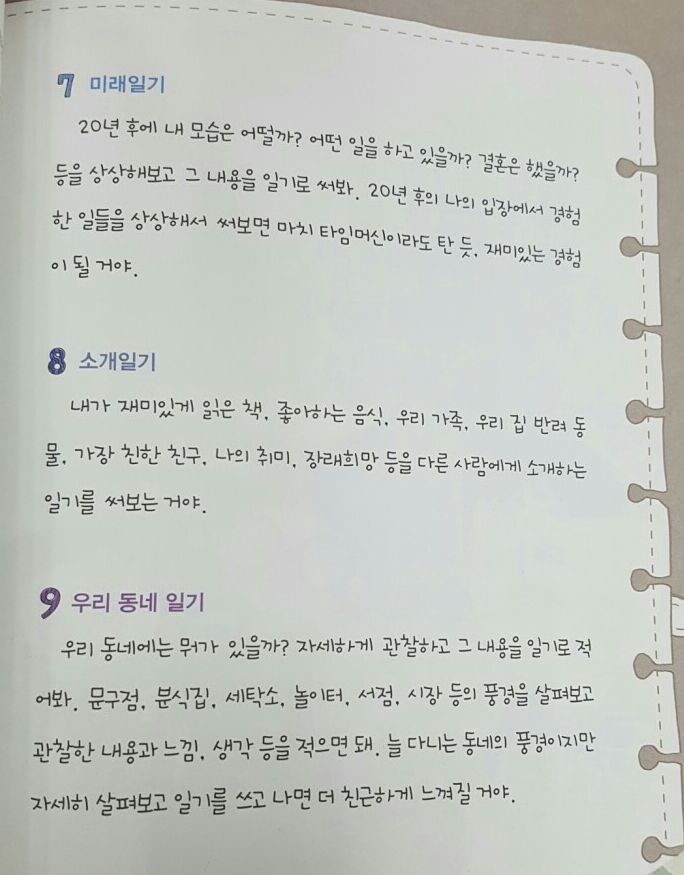 7 미래일기
20년 후에 내 모습은 어떨까? 어떤 일을 하고 있을까? 결혼은 했을까?
등을 상상해보고 그 내용을 일기로 써봐. 20년 후의 나의 입장에서 경험
한 일들을 상상해서 써보면 마치 타임머신이라도 탄 듯, 재미있는 경험
이 될 거야.
8 소개일기
내가 재미있게 읽은 책, 좋아하는 음식, 우리 가족, 우리 집 반려 동
물, 가장 친한 친구, 나의 취미, 장래희망 등을 다른 사람에게 소개하는
일기를 써보는 거야.
9 우리 동네 일기
우리 동네에는 뭐가 있을까? 자세하게 관찰하고 그 내용을 일기로 적
어봐. 문구점, 분식집, 세탁소, 놀이터, 서점, 시장 등의 풍경을 살펴보고
관찰한 내용과 느낌, 생각 등을 적으면 돼. 늘 다니는 동네의 풍경이지만
자세히 살펴보고 일기를 쓰고 나면 더 친근하게 느껴질 거야.